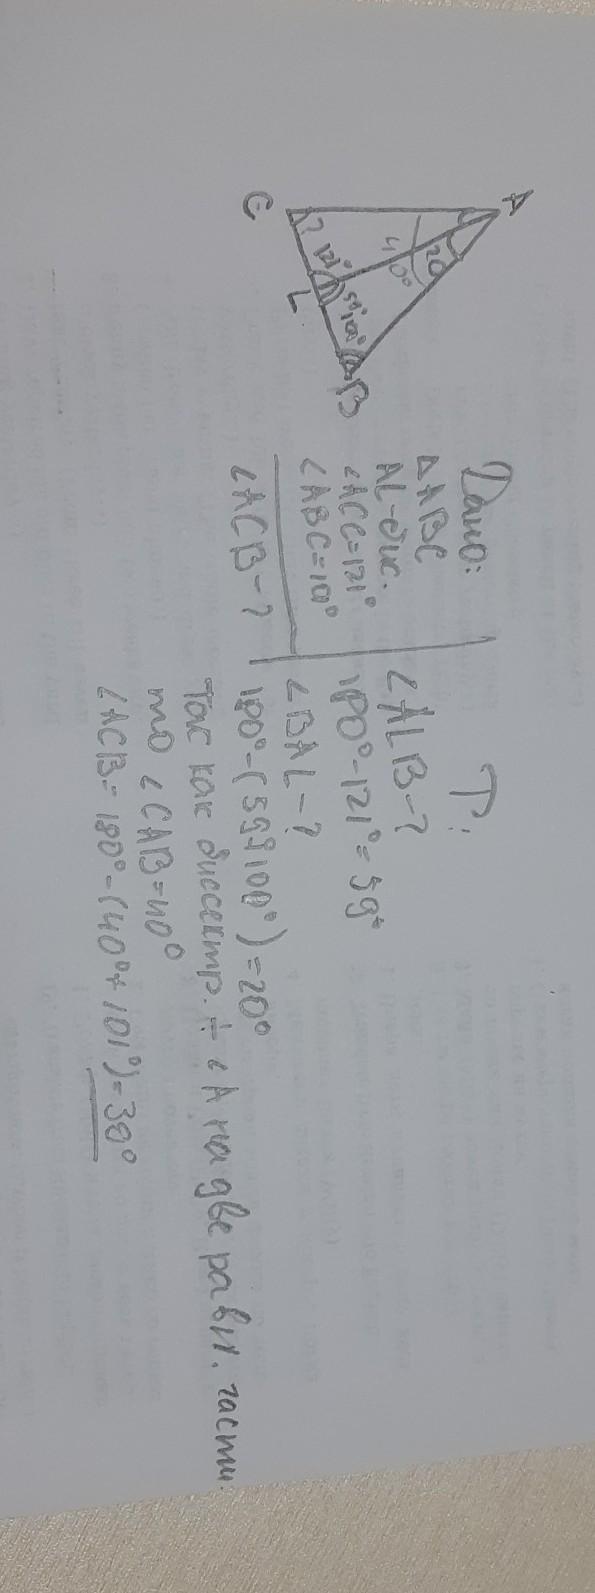 A
20
40°
C
?
121°
L
59°
101°
B
Дано:
△ABC
AL-бис.
∠ACC=121°
∠ABC=101°
∠ACB-?
T:
∠ALB-?
180°-121°=59°
∠BAL-?
180°-(59°+101°)=20°
Так как биссектр. ÷ ∠A на две равн. части
то ∠CAB=40°
∠ACB=180°-(40°+101°)=39°